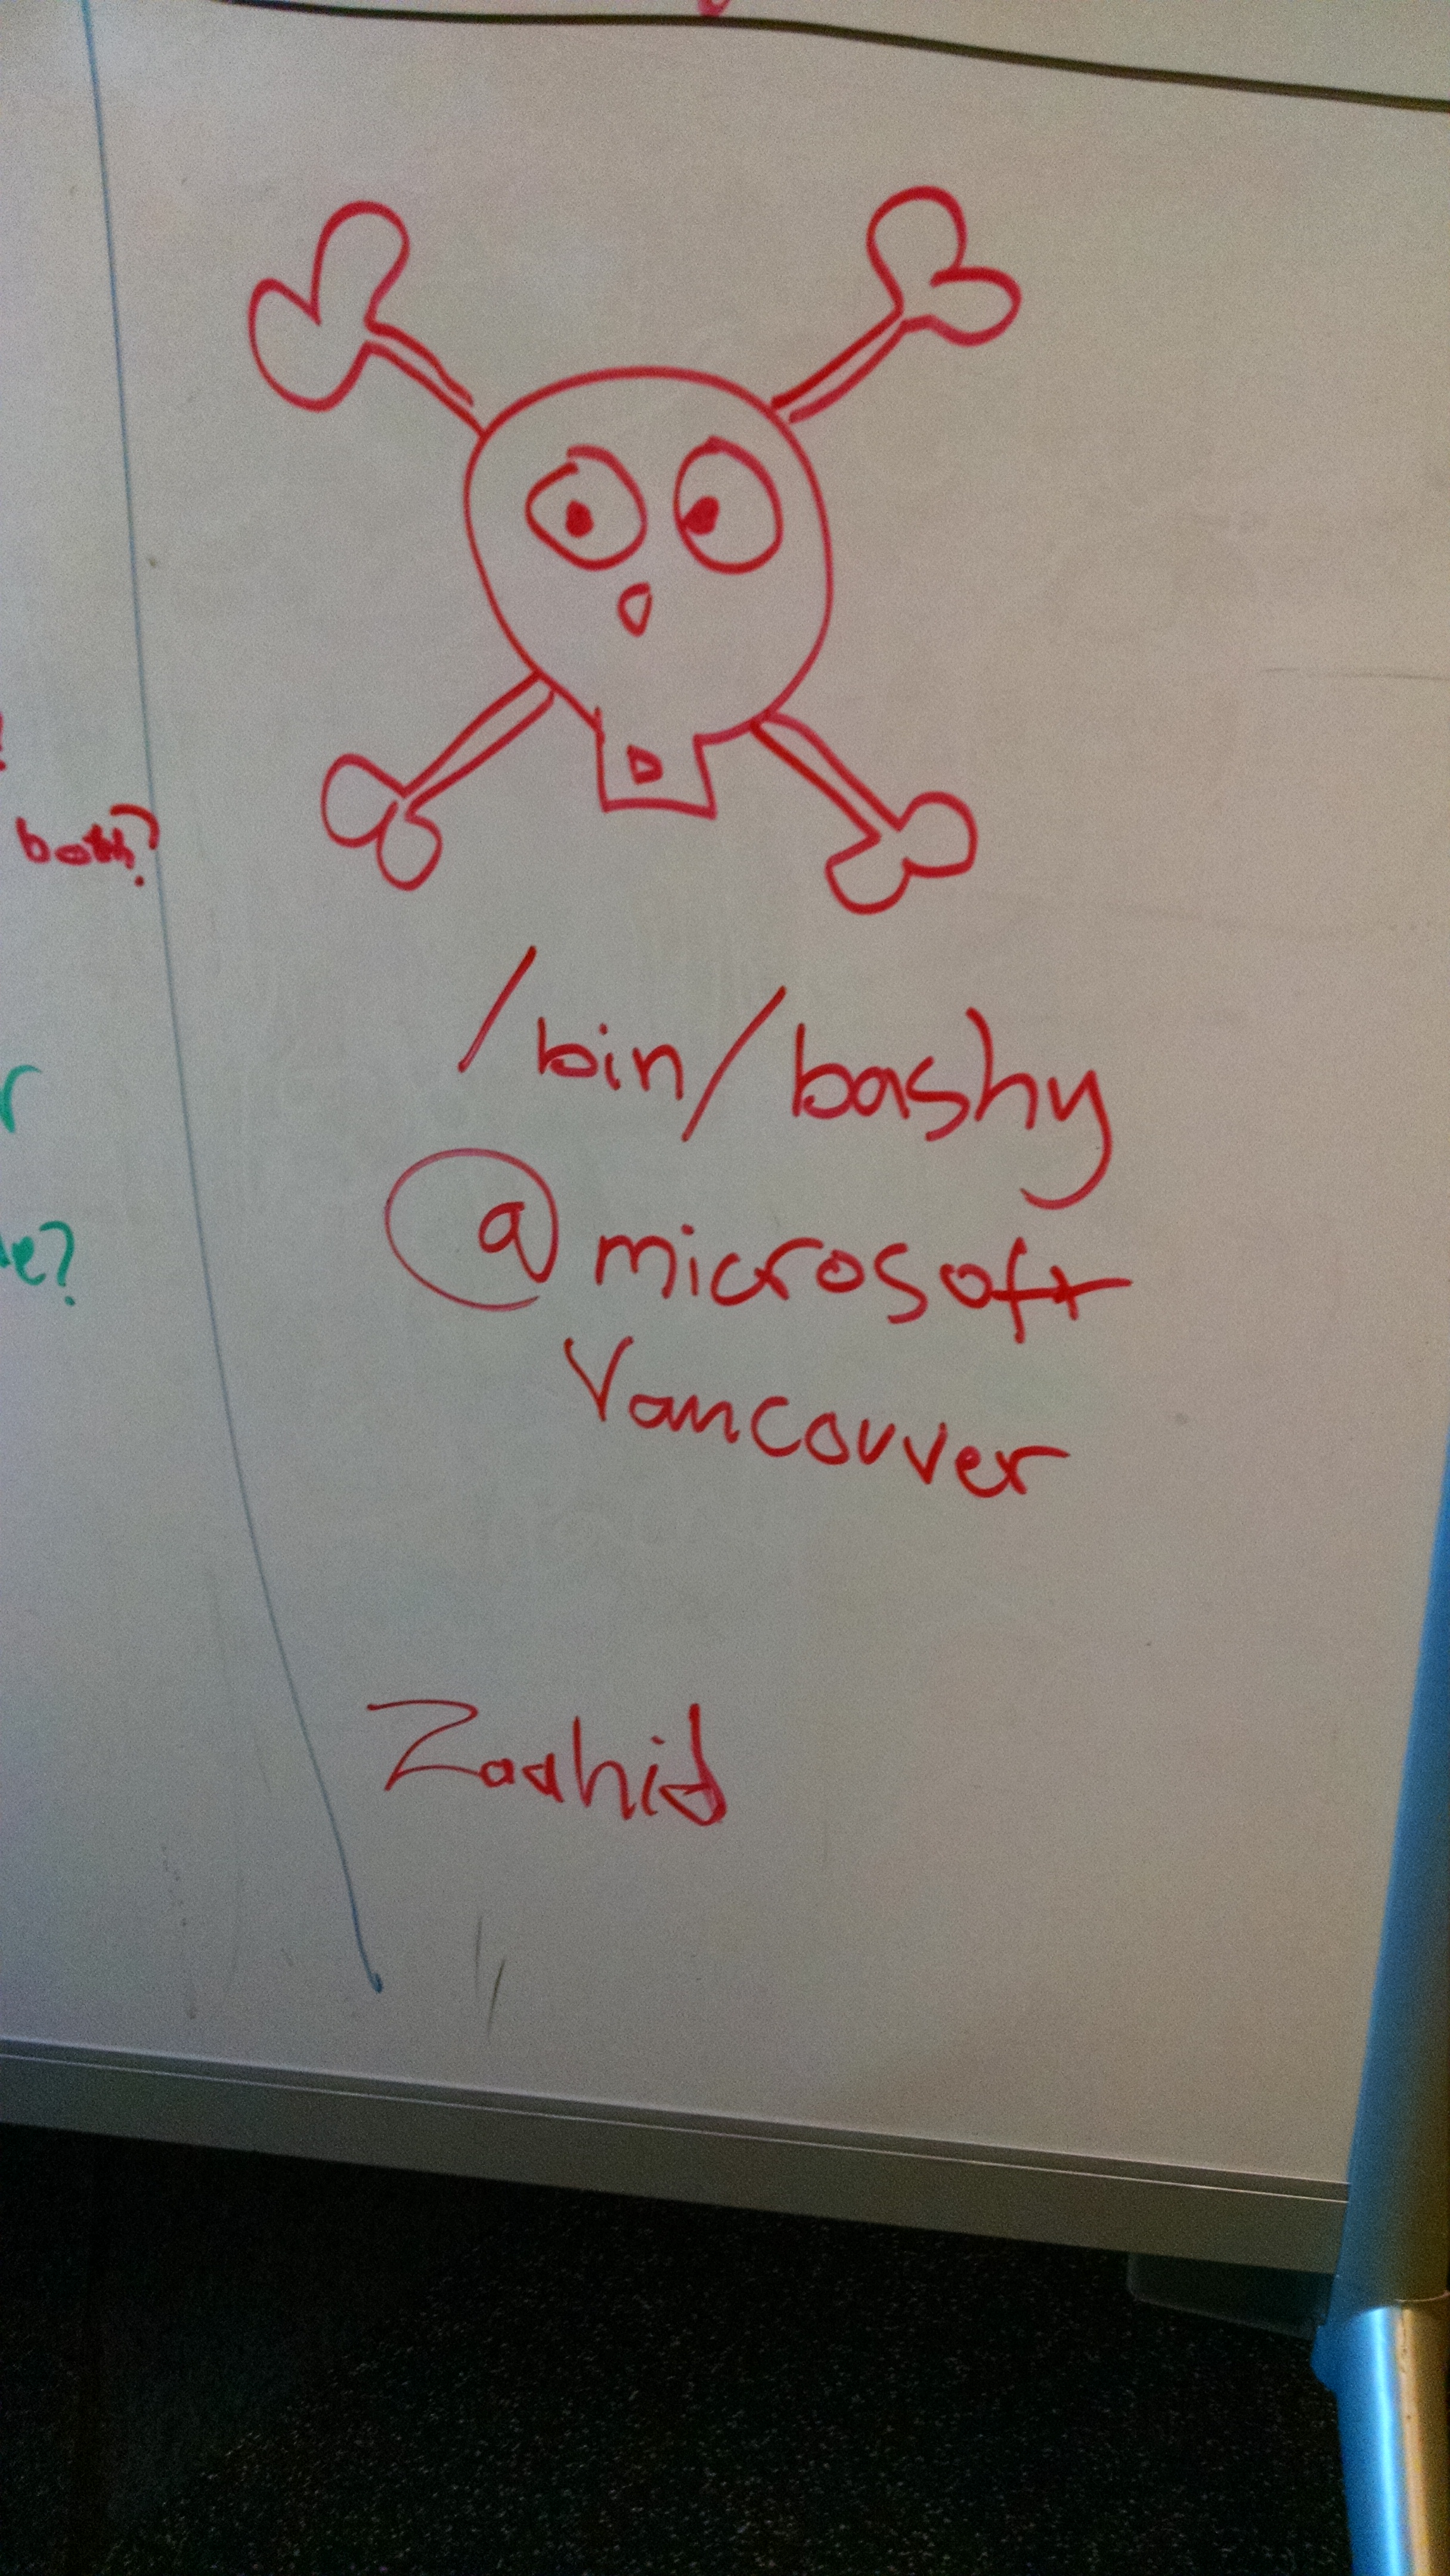 both?
/bin/bashy
@microsoft
Vancouver
Zaahid